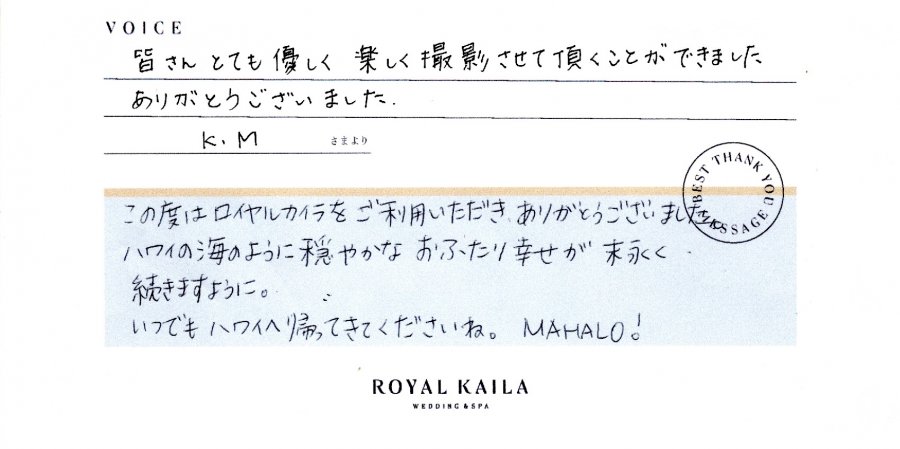 VOICE
皆さんとても優しく 楽しく撮影させて頂くことができました
ありがとうございました.
K.M さまより
BEST THANK YOU MESSAGE
この度はロイヤルカイラをご利用いただき、ありがとうございました。
ハワイの海のように穏やかな おふたり幸せが 末永く
続きますように。
いつでも ハワイへ帰ってきてくださいね。 MAHALO!
ROYAL KAILA
WEDDING & SPA